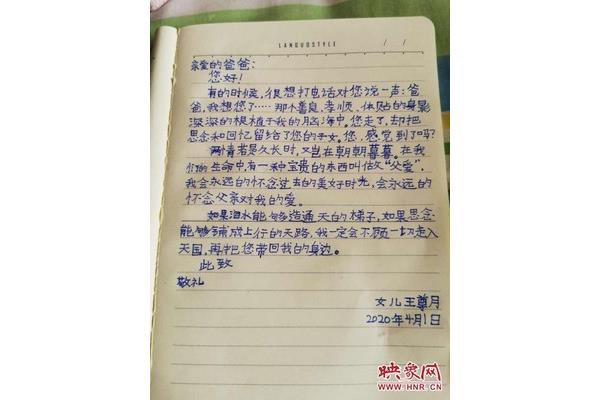 LANGUOSTYLE
/ /
亲爱的爸爸:
您好!
有的时候,很想打电话对您说一声:爸
爸,我想您了……那个善良、孝顺、体贴的身影
深深的根植于我的脑海中。您走了,却把
思念和回忆留给了您的子女。您,感觉到了吗?
两情若是久长时,又岂在朝朝暮暮。在我
们的生命中,有一种宝贵的东西叫做“父爱”,
我会永远的怀念过去的美好时光,会永远的
怀念父亲对我的爱。
如果泪水能够造通天的梯子,如果思念
能够铺成上行的天路,我一定会不顾一切走入
天国,再把您带回我的身边。
此致
敬礼
女儿王尊月
2020年4月1日
映象网
WWW.HNR.CN